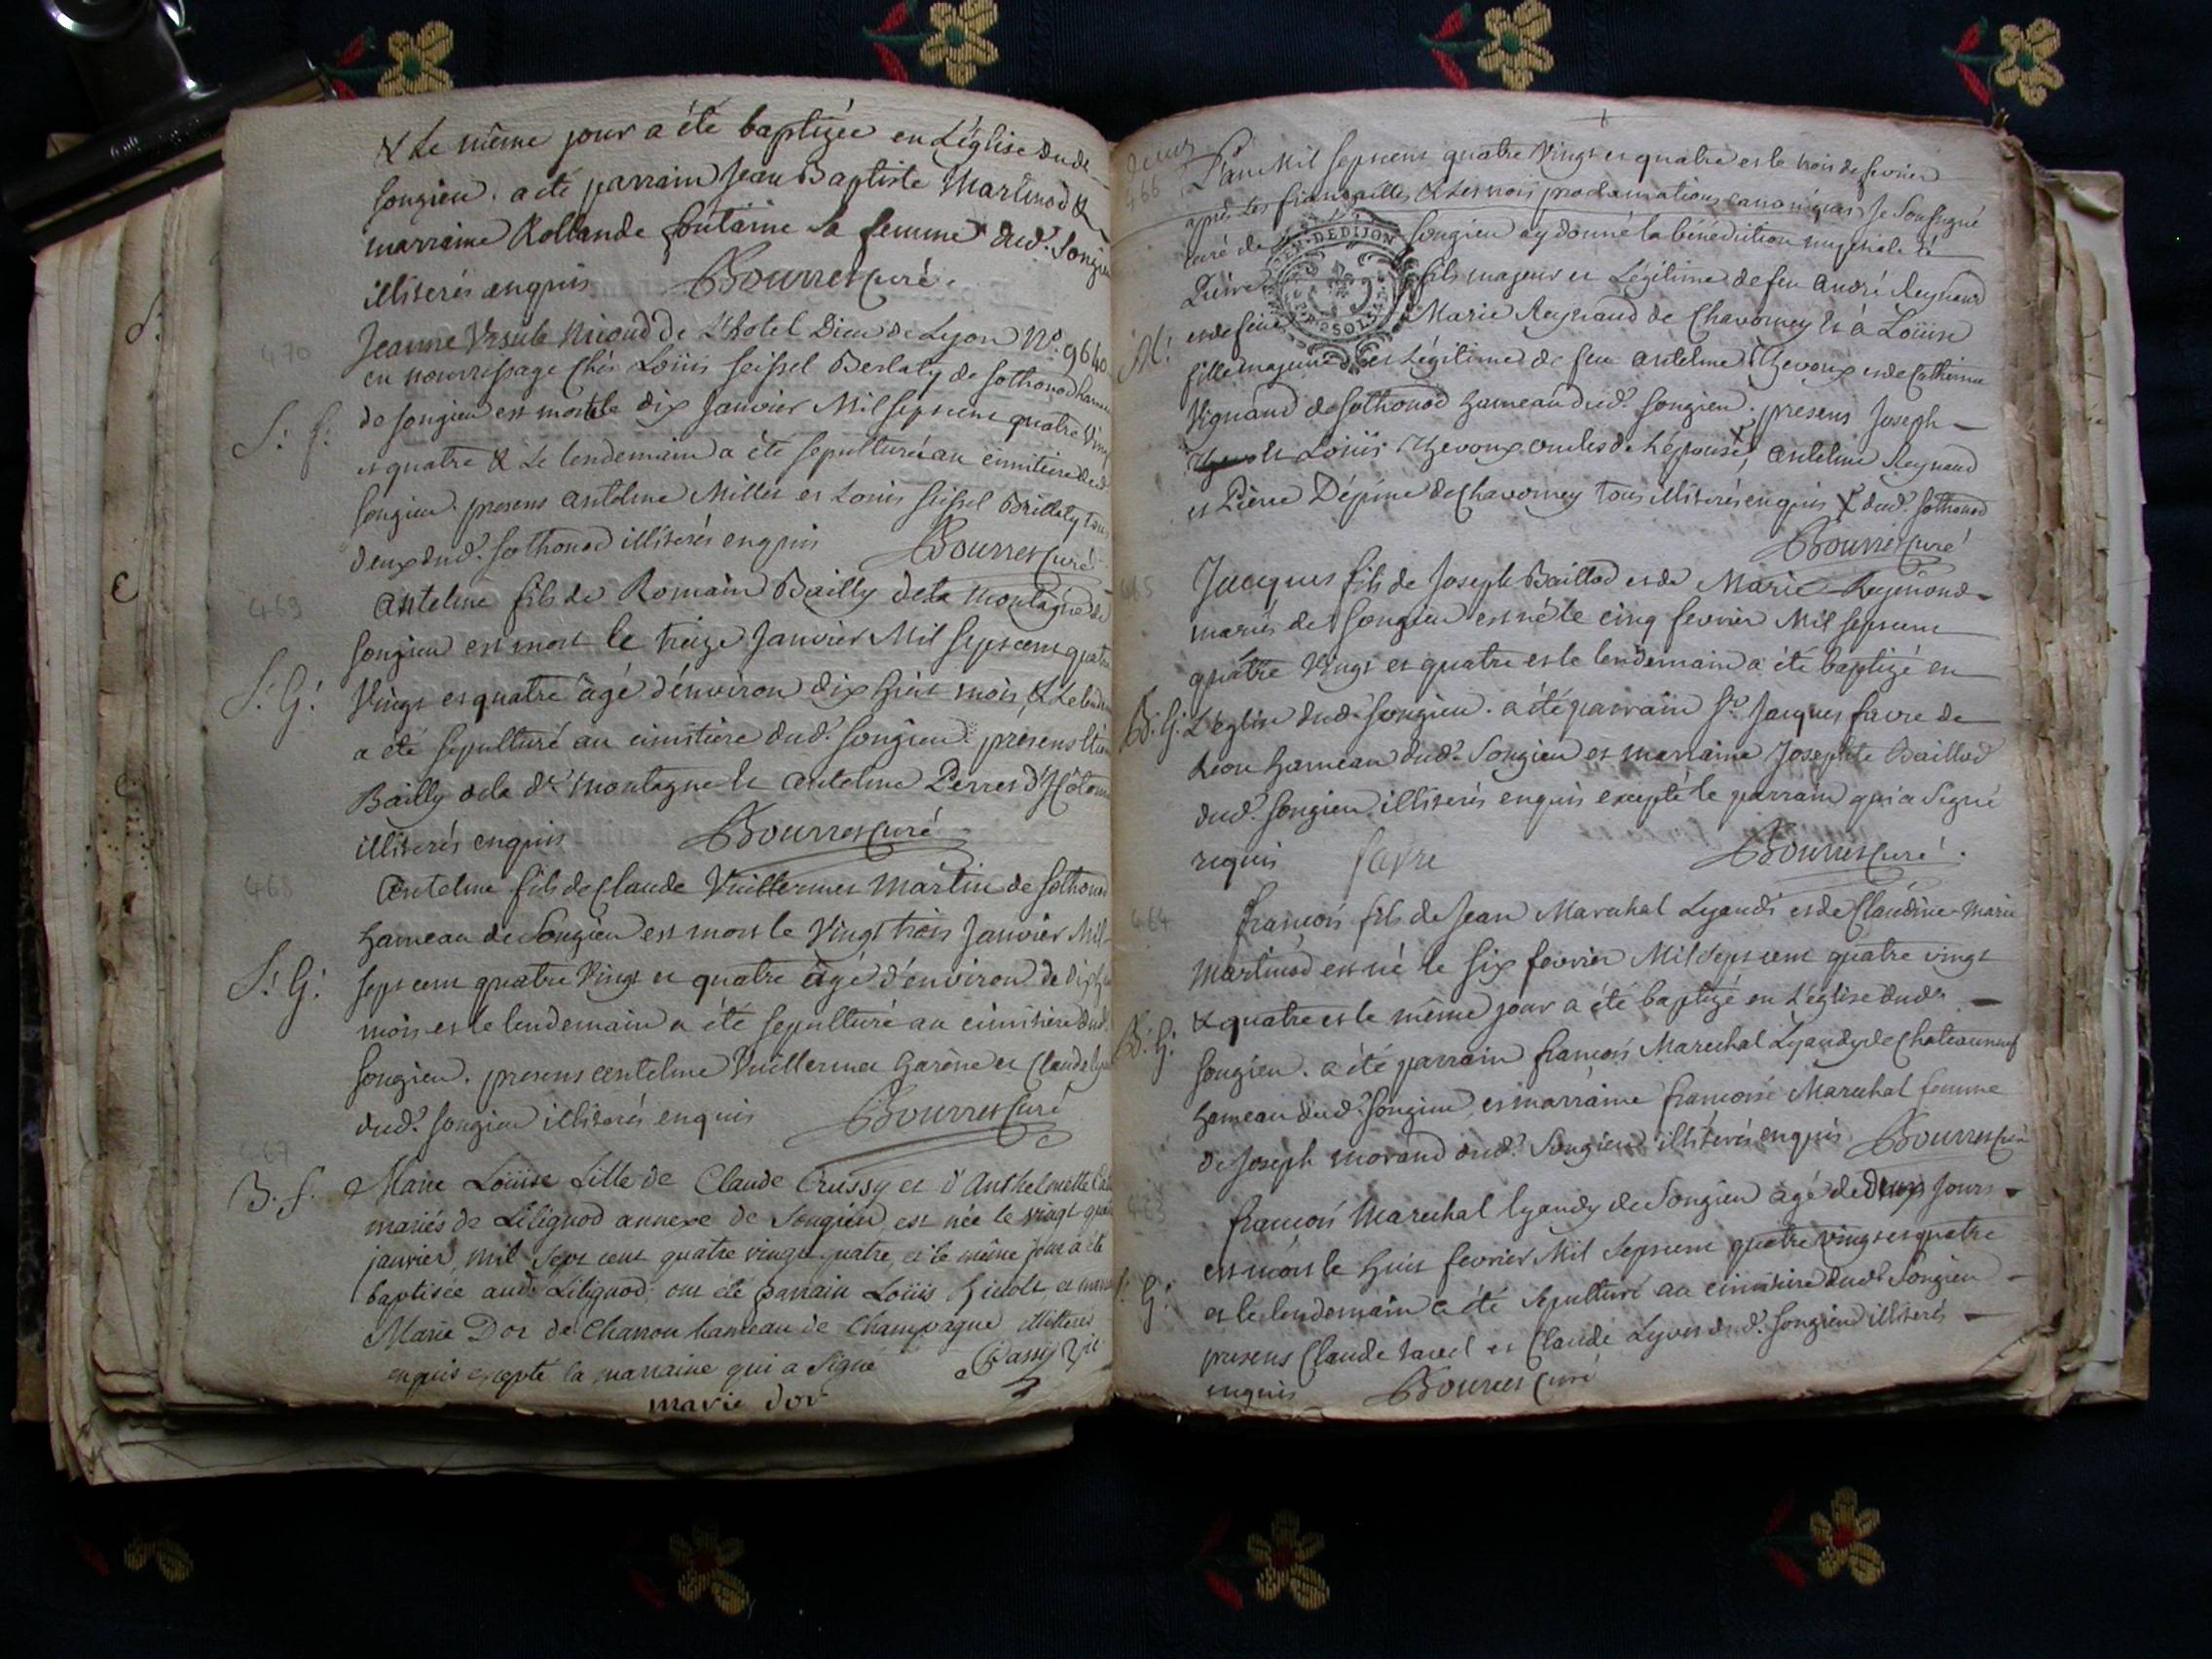 & Le même jour a été baptizée en L'église dud.
Songieu. a été parrain Jean Baptiste Martinod &
marraine Rollande fontaine sa femme dud. Songieu
illiterés enquis Bourret Curé.
470
Jeanne Ursule de L'hotel Dieu de Lyon N°. 9640
en nourrissage chés Loüis seissel de sothonod
S. f.
de songieu est morte le dix janvier Mil sept cent quatre Vingt
et quatre & Le lendemain a été sepulturé au cimitiere dud.
songieu. presens antelme Millet et Louis seissel tous
deux dud. sothonod illiterés enquis Bourret Curé
469
Antelme fils de Romain Bailly de la Montagne de
songieu est mort le treize Janvier Mil sept cent quatre
S. G.
Vingt et quatre agé d'environ dix huit mois, & Le
a été sepulturé au cimitiere dud. songieu. presens
Bailly de la de. Montagne & antelme Perret
illiterés enquis Bourret Curé
468
Antelme fils de Claude Vuillermet Martin de sothonod
hameau de Songieu est mort le Vingt trois Janvier Mil
S. G.
sept cent quatre Vingt et quatre agé d'environ de
mois et le lendemain a été sepulturé au cimitiere dud.
songieu. presens antelme Vuillermet et Claude
dud. songieu illiterés enquis Bourret Curé
467
B. f.
Marie Loüise fille de Claude Crussy et d'Anthelmette
mariés de Lilignod annexe de Songieu est née le vingt
janvier mil sept cent quatre vingt quatre, et le même jour a été
baptisée aud. Lilignod. ont été parrain Loüis et
Marie Dor de Charron hameau de Champagne illitterés
enquis excepté la marraine qui a signé
marie dor
466
L'an Mil sept cent quatre Vingt et quatre et le trois de fevrier
après Les fiancailles & Les trois proclamations canoniques, Je Soussigné
curé de Songieu ay donné la bénédiction nuptiale à
EN. DE DIJON
Pierre fils majeur et Légitime de feu André Reynaud
SOLS
M.
et de feüe Marie Reynaud de Chavorney & à Loüise
fille majeure et Légitime de feu antelme Thevoux et de Catherine
Vignand de sothonod hameau dud. songieu. presens Joseph
& Loüis Thevoux oncles de L'épouse, antelme Reynaud
et Pierre Dépine de Chavorney tous illiterés enquis X dud. sothonod
Bourret Curé
465
Jacques fils de Joseph Baillod et de Marie Reymond
mariés de songieu est né le cinq fevrier Mil sept cent
quatre Vingt et quatre et le lendemain a été baptizé en
B. G.
L'église dud. songieu. a été parrain Sr. Jacques favre de
hameau dud. Songieu et marraine Josephte Baillod
dud. songieu illiterés enquis excepté le parrain qui a Signé
requis favre Bourret Curé.
464
francois fils de Jean Marechal Lyandi et de Claudine Marie
Martinod est né le six fevrier Mil sept cent quatre vingt
& quatre et le même jour a été baptizé en L'église dud.
B. G.
songieu. a été parrain francois Marechal Lyandy de Chateauneuf
hameau dud. Songieu, et marraine francoise Marechal femme
de Joseph Morand dud. Songieu illiterés enquis Bourret Curé
francois Marechal lyandy de Songieu agé de deux jours
est mort le huit fevrier Mil sept cent quatre vingt et quatre
G.
et le lendemain a été sepulturé au cimitiere dud. Songieu
presens Claude et Claude dud. songieu illiterés
enquis Bourret Curé